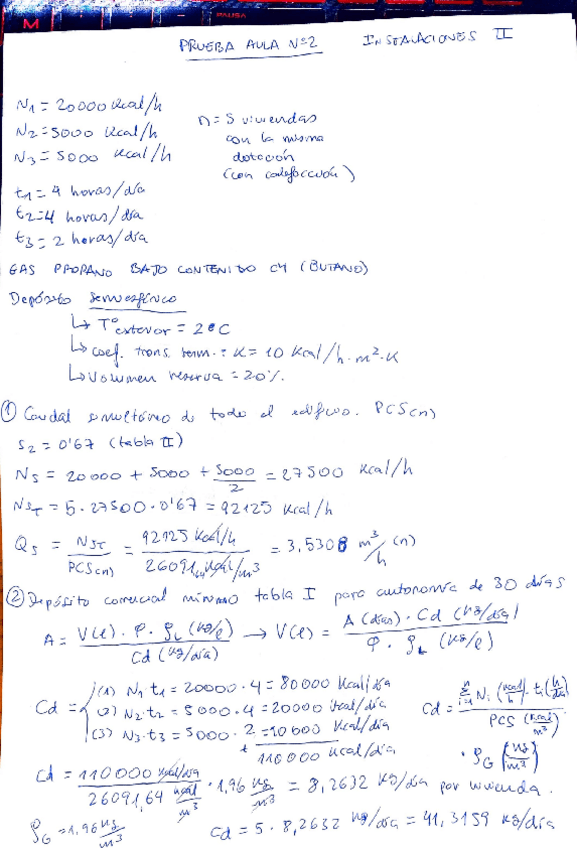 M PAUSA
PRUEBA AULA Nº2 INSTALACIONES II
N1 = 20000 Kcal/h
N2 = 5000 Kcal/h
N3 = 5000 Kcal/h
n = 5 viviendas
con la misma
dotación
(con calefacción)
t1 = 4 horas/día
t2 = 4 horas/día
t3 = 2 horas/día
GAS PROPANO BAJO CONTENIDO C4 (BUTANO)
Depósito semiesférico
↳ Tª exterior = 2ºC
↳ coef. trans. term.: K = 10 Kcal/h·m²·K
↳ Volumen reserva = 20%
① Caudal simultáneo de todo el edificio. PCS(n)
S2 = 0'67 (tabla II)
Ns = 20000 + 5000 + 5000/2 = 27500 Kcal/h
NsT = 5 · 27500 · 0'67 = 92125 Kcal/h
Qs = NsT/PCS(n) = 92125 Kcal/h / 26091,64 Kcal/m³ = 3,5308 m³/h (n)
② Depósito comercial mínimo tabla I para autonomía de 30 días
A = V(l) · φ · ρL (kg/l) / Cd (kg/día) → V(l) = A (días) · Cd (kg/día) / φ · ρL (kg/l)
Cd = { (1) N1 t1 = 20000 · 4 = 80000 Kcal/día
(2) N2·t2 = 5000 · 4 = 20000 Kcal/día
(3) N3·t3 = 5000 · 2 = 10000 Kcal/día
+ 110000 Kcal/día
Cd = Σ Ni (Kcal/h) · ti (h/día) / PCS (Kcal/m³) · ρG (kg/m³)
Cd = 110000 Kcal/día / 26091,64 Kcal/m³ · 1,96 kg/m³ = 8,2632 kg/día por vivienda.
ρG = 1,96 kg/m³
Cd = 5 · 8,2632 kg/día = 41,3159 kg/día